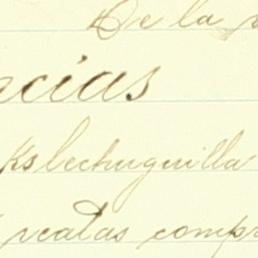 De la
acias
ks lechuguilla
reatas compr